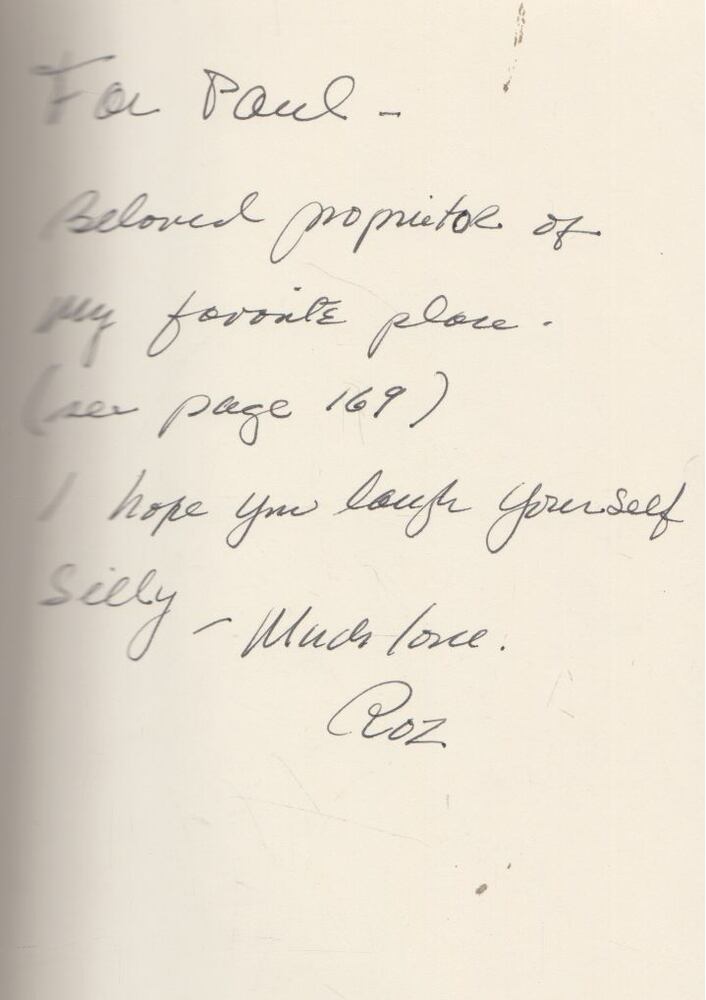 For Paul -
Beloved proprietor of
my favorite place.
(see page 169)
I hope you laugh yourself
silly - Much love.
Roz